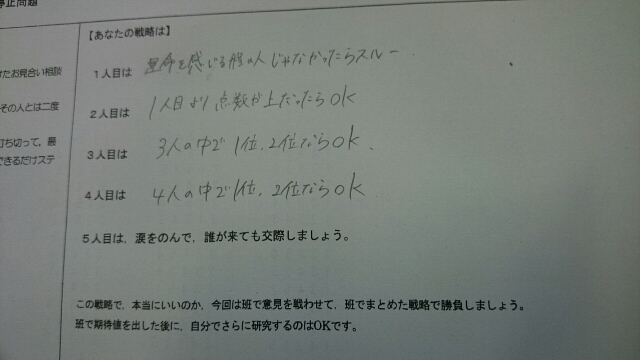 停止問題
【あなたの戦略は】
けたお見合い相談
1人目は 運命を感じる程の人じゃなかったらスルー
その人とは二度
2人目は 1人目より点数が上だったらOK
打ち切って，最
3人目は 3人の中で1位、2位ならOK、
できるだけステ
4人目は 4人の中で1位、2位ならOK
5人目は，涙をのんで，誰が来ても交際しましょう。
この戦略で，本当にいいのか，今回は班で意見を戦わせて，班でまとめた戦略で勝負しましょう。
班で期待値を出した後に，自分でさらに研究するのはOKです。